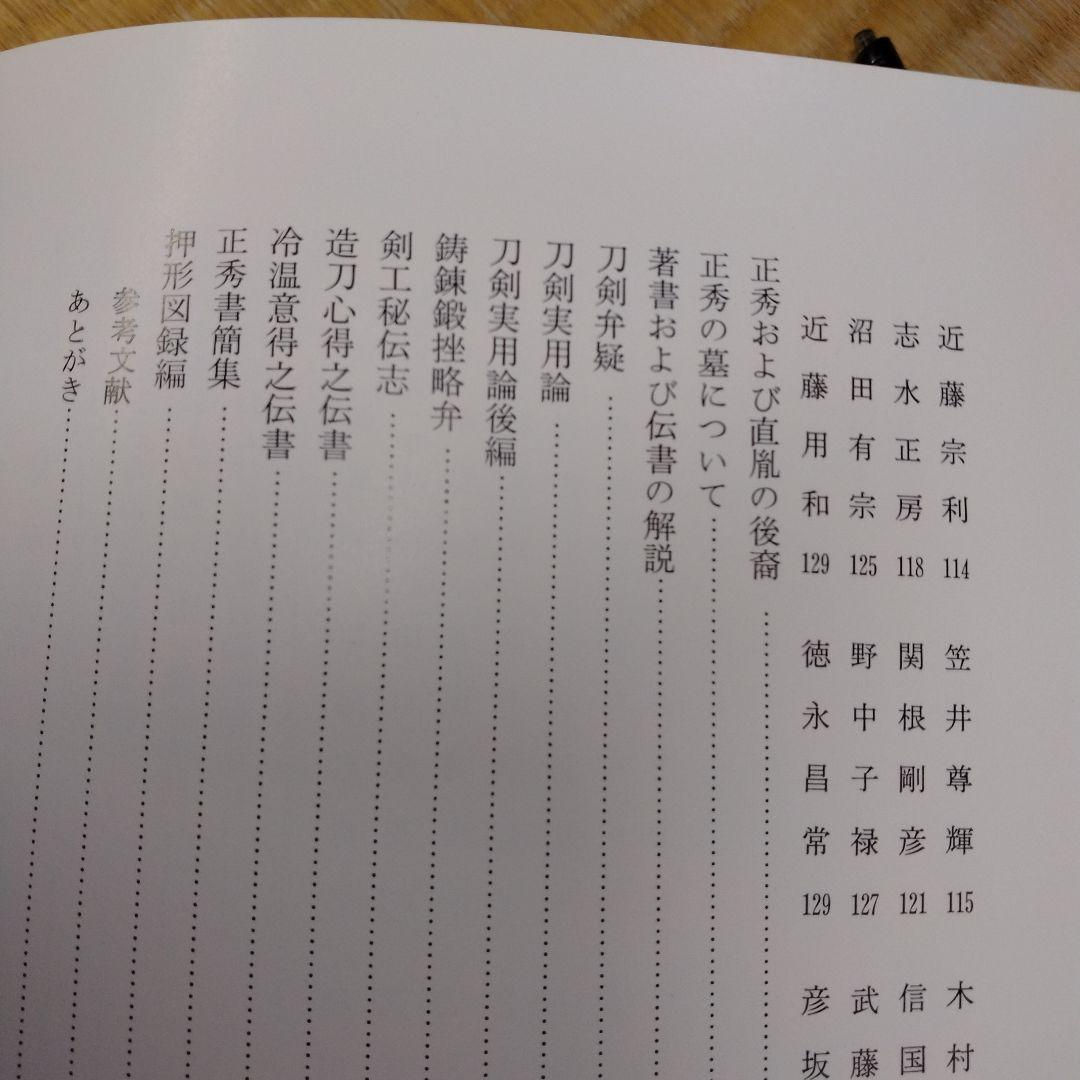 近藤宗利 114 笠井尊輝 115 木村
志水正房 118 関根剛彦 121 信国
沼田有宗 125 野中子禄 127 武藤
近藤用和 129 徳永昌常 129 彦坂
正秀および直胤の後裔
正秀の墓について
著書および伝書の解説
刀剣弁疑
刀剣実用論
刀剣実用論後編
鋳錬鍛挫略弁
剣工秘伝志
造刀心得之伝書
冷温意得之伝書
正秀書簡集
押形図録編
参考文献
あとがき